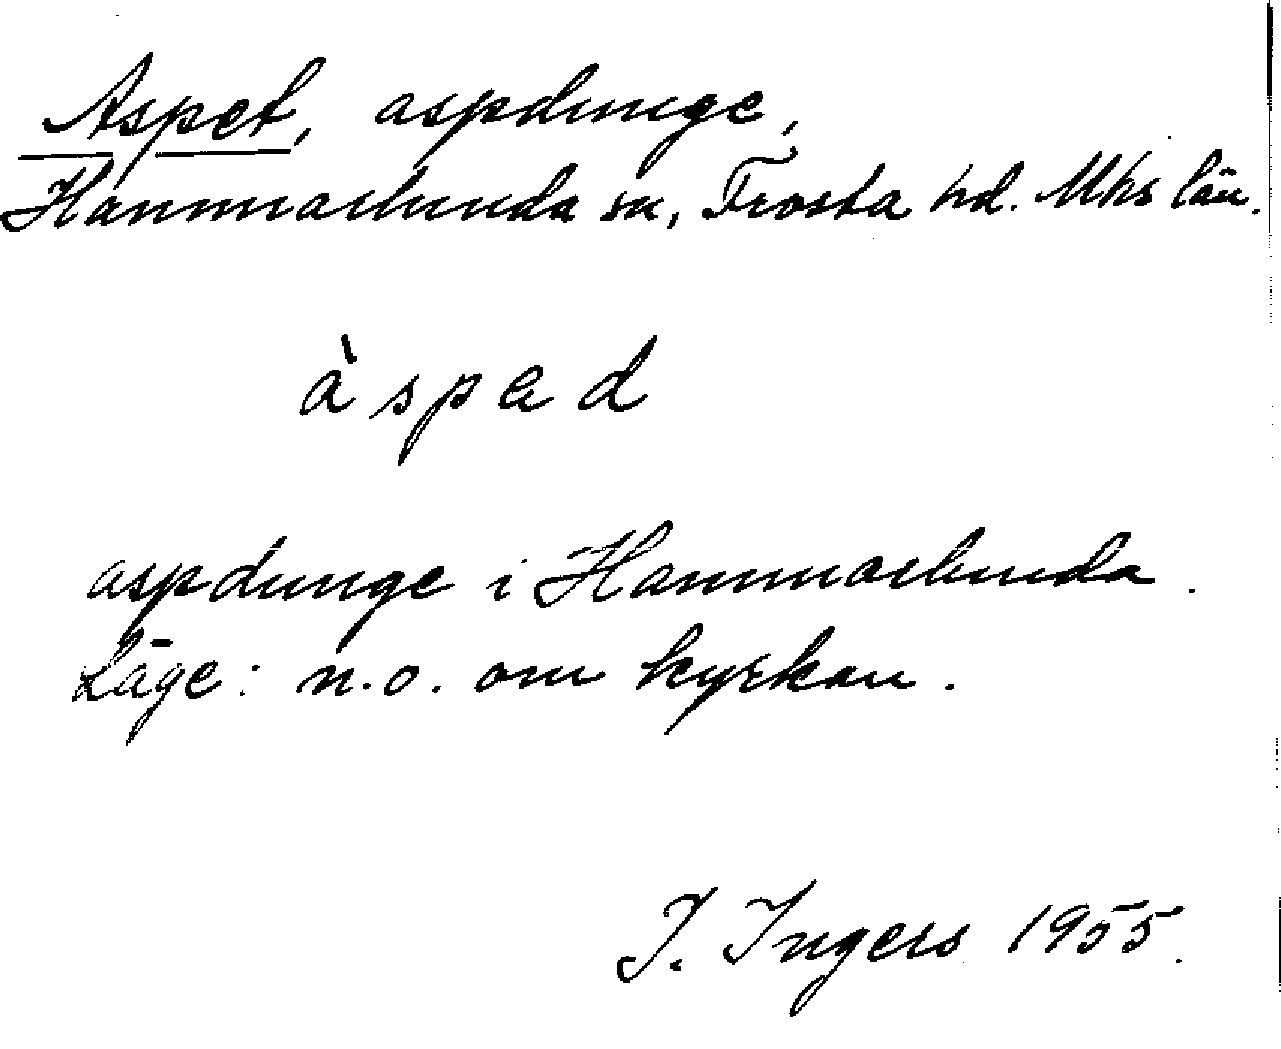 Aspet, aspdunge,
Hammarlunda sn, Frosta hd. Mhs län.
àspad
aspdunge i Hammarlunda.
Läge: n.o. om kyrkan.
I. Ingers 1955.